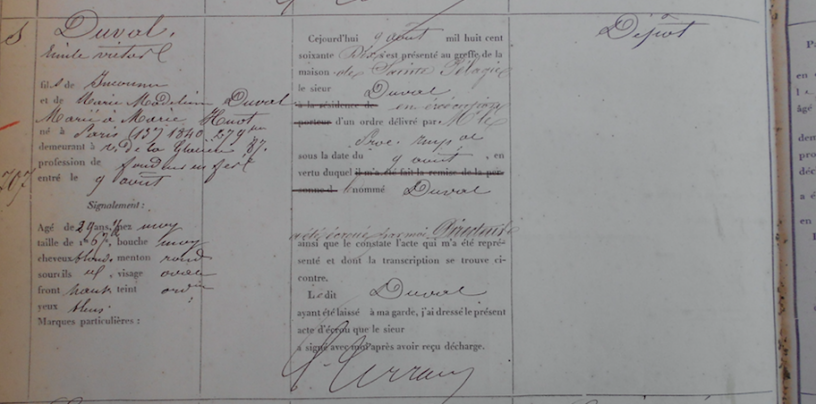 Duval.
Emile victor
fils de Inconnu
et de Marie Madeleine Duval
Marié à Marie Huot
né à Paris (13e) 1840. 27 9bre
demeurant à r. de la Glacière, 87.
profession de fondeur en fer
entré le 9 août
Signalement:
Agé de 29 ans, nez moy
taille de 1m 67, bouche moy
cheveux blonds, menton rond
sourcils id, visage ovale
front haut teint ordre
yeux bleus
Marques particulières:
Cejourd'hui 9 août mil huit cent
soixante Dix, s'est présenté au greffe de la
maison de Sainte Pélagie
le sieur Duval
à la résidence de en exécution
porteur d'un ordre délivré par M. le
Proc. Imp al
sous la date du 9 août, en
vertu duquel il m'a été fait la remise de la per-
sonne d le nommé Duval
a été écroué par moi Directeur
ainsi que le constate l'acte qui m'a été repré-
senté et dont la transcription se trouve ci-
contre.
Le dit Duval
ayant été laissé à ma garde, j'ai dressé le présent
acte d'écrou que le sieur
a signé avec moi après avoir reçu décharge.
Dépôt